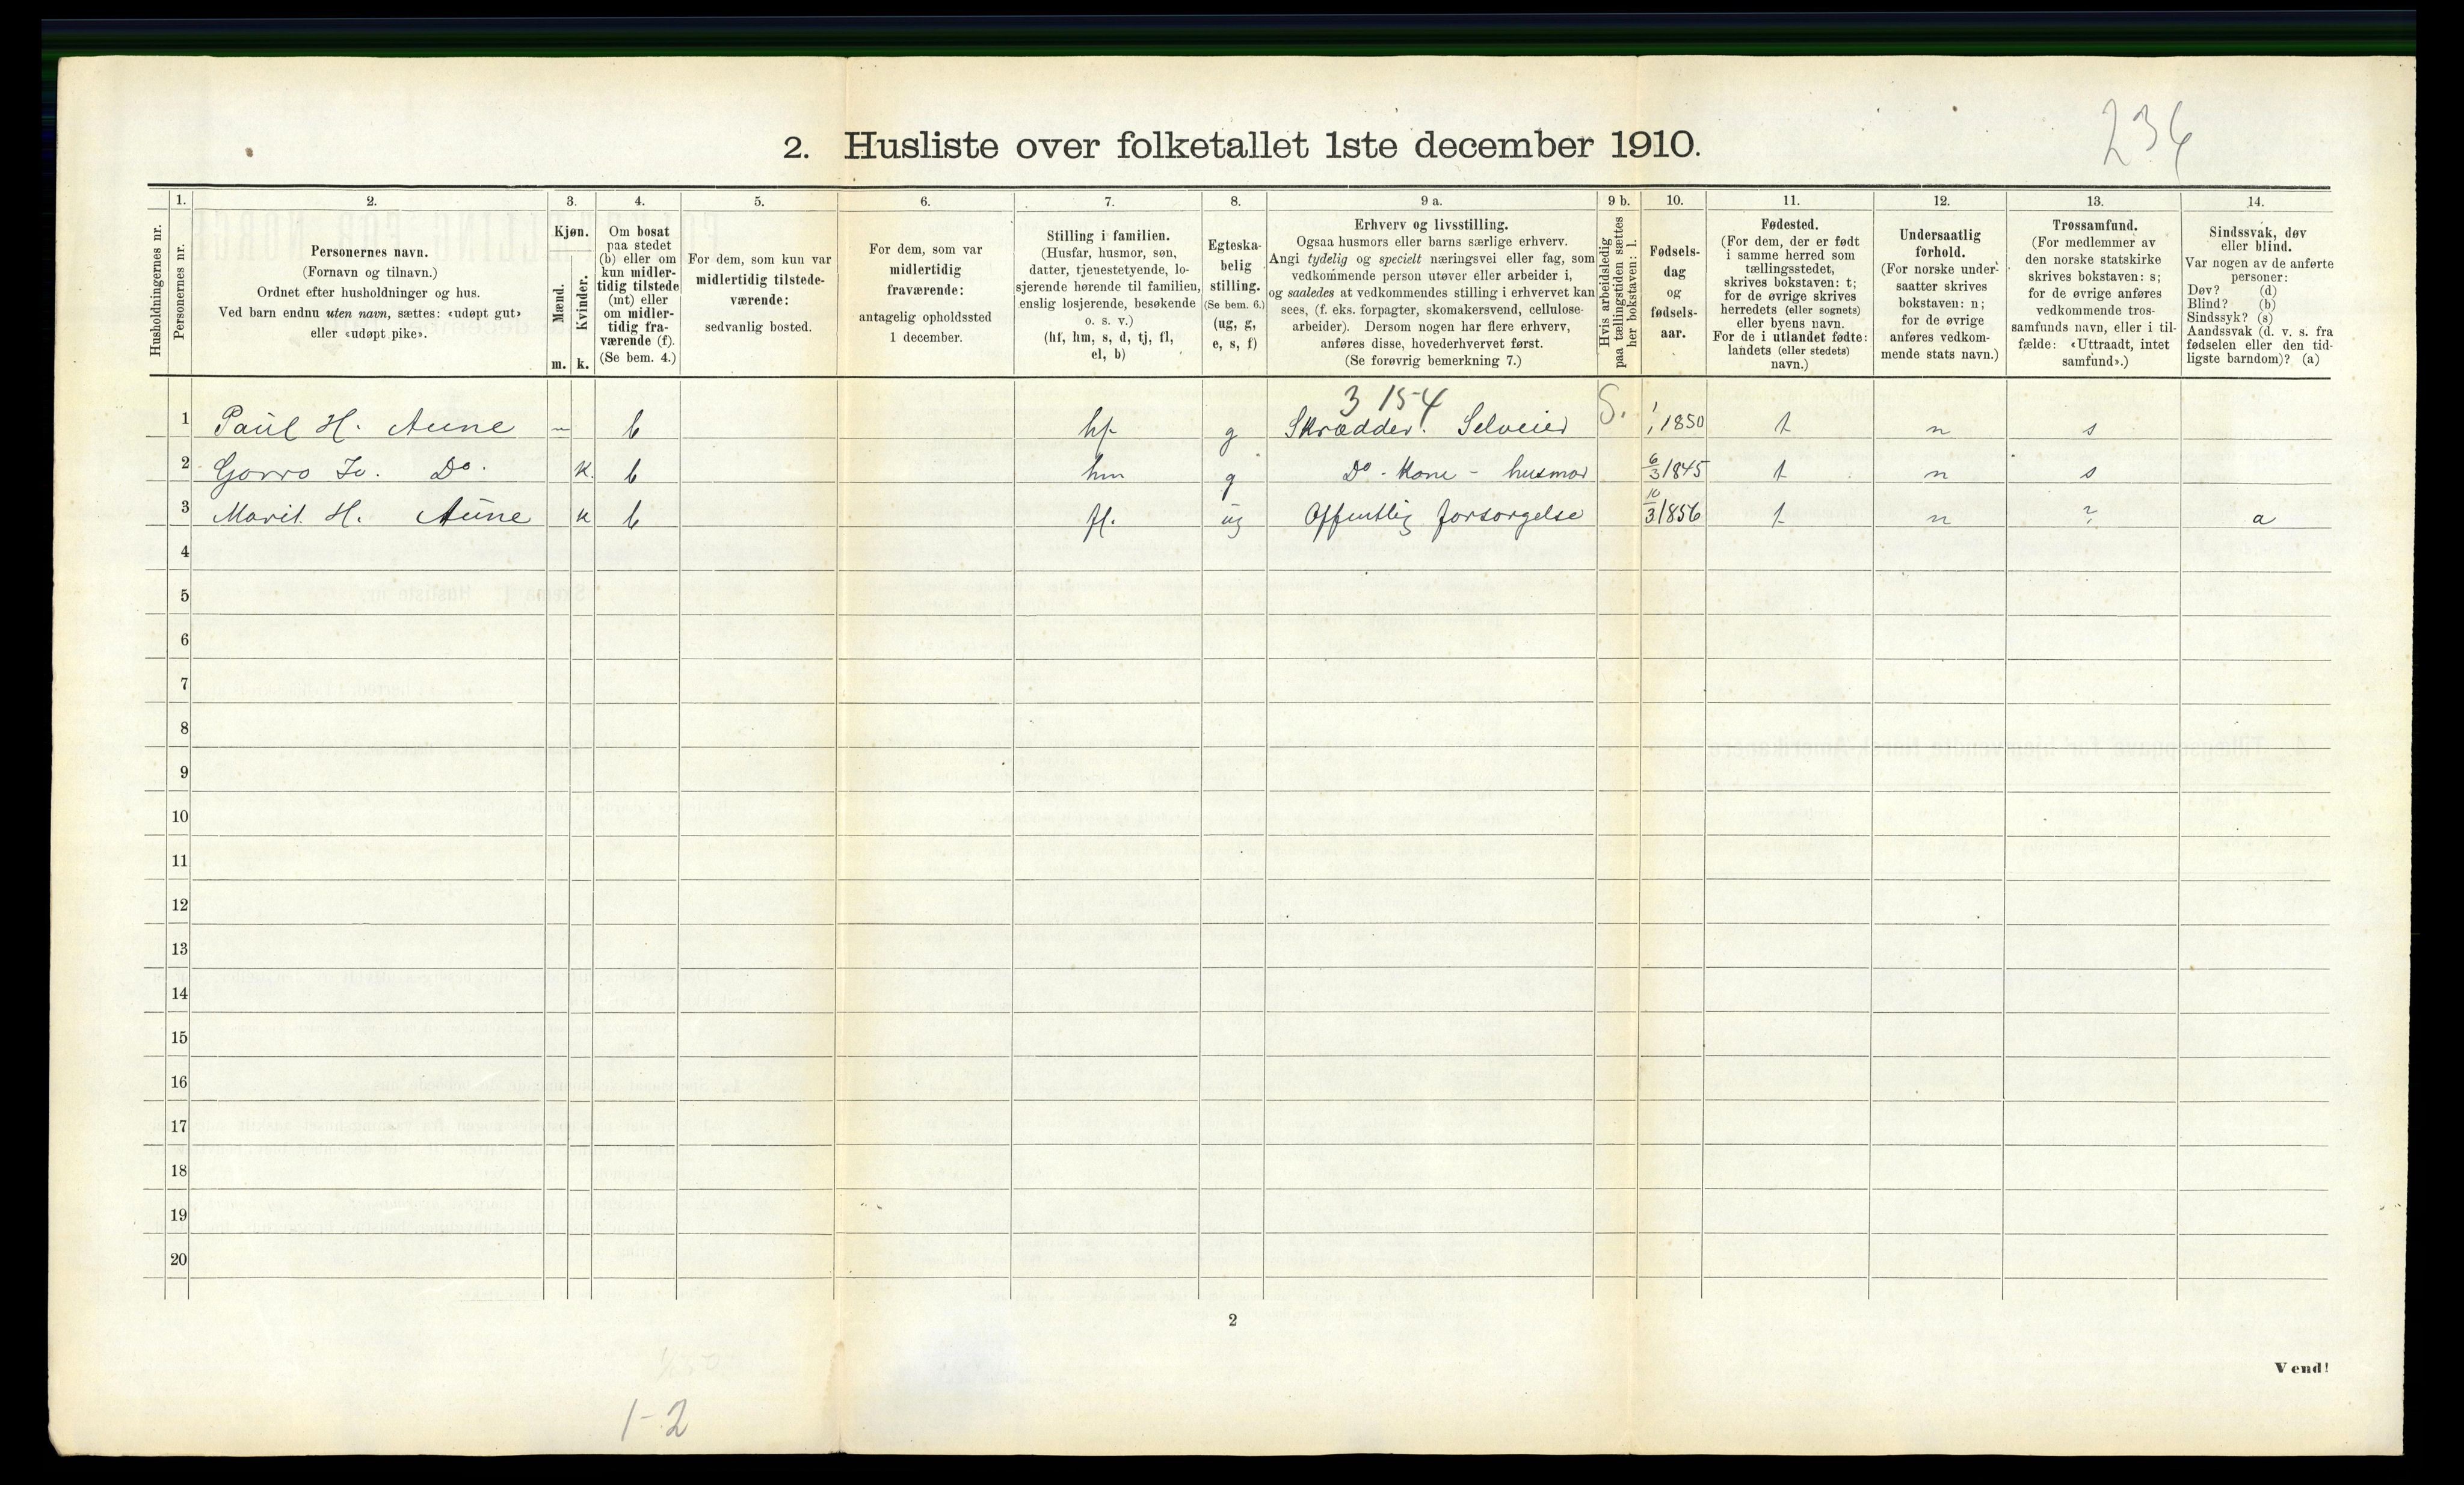 2. Husliste over folketallet 1ste december 1910.
236
Husholdningernes nr.
1.
Personernes nr.
2.
Personernes navn.
(Fornavn og tilnavn.)
Ordnet efter husholdninger og hus.
Ved barn endnu uten navn, sættes: «udøpt gut»
eller «udøpt pike».
3.
Kjøn.
Mænd.
Kvinder.
m. k.
4.
Om bosat
paa stedet
(b) eller om
kun midler-
tidig tilstede
(mt) eller
om midler-
tidig fra-
værende (f).
(Se bem. 4.)
5.
For dem, som kun var
midlertidig tilstede-
værende:
sedvanlig bosted.
6.
For dem, som var
midlertidig
fraværende:
antagelig opholdssted
1 december.
7.
Stilling i familien.
(Husfar, husmor, søn,
datter, tjenestetyende, lo-
sjerende hørende til familien,
enslig losjerende, besøkende
o. s. v.)
(hf, hm, s, d, tj, fl,
el, b)
8.
Egteska-
belig
stilling.
(Se bem. 6.)
(ug, g,
e, s, f)
9 a.
Erhverv og livsstilling.
Ogsaa husmors eller barns særlige erhverv.
Angi tydelig og specielt næringsvei eller fag, som
vedkommende person utøver eller arbeider i,
og saaledes at vedkommendes stilling i erhvervet kan
sees, (f. eks. forpagter, skomakersvend, cellulose-
arbeider). Dersom nogen har flere erhverv,
anføres disse, hovederhvervet først.
(Se forøvrig bemerkning 7.)
9 b.
Hvis arbeidsledig
paa tællingstiden sættes
her bokstaven: l.
10.
Fødsels-
dag
og
fødsels-
aar.
11.
Fødested.
(For dem, der er født
i samme herred som
tællingsstedet,
skrives bokstaven: t;
for de øvrige skrives
herredets (eller sognets)
eller byens navn.
For de i utlandet fødte:
landets (eller stedets)
navn.)
12.
Undersaatlig
forhold.
(For norske under-
saatter skrives
bokstaven: n;
for de øvrige
anføres vedkom-
mende stats navn.)
13.
Trossamfund.
(For medlemmer av
den norske statskirke
skrives bokstaven: s;
for de øvrige anføres
vedkommende tros-
samfunds navn, eller i til-
fælde: «Uttraadt, intet
samfund».)
14.
Sindssvak, døv
eller blind.
Var nogen av de anførte
personer:
Døv? (d)
Blind? (b)
Sindssyk? (s)
Aandssvak (d. v. s. fra
fødselen eller den tid-
ligste barndom)? (a)
3 154 S.
1 Paul H. Aune — b hf g Skrædder. Selveier 1/1 1850 t n s
2 Gorro Jo. Do. K. b hm g Do - Kone - husmor 6/3 1845 t n s
3 Marit H. Aune k b fl. ug Offentlig forsorgelse 10/3 1856 t n ? a
4
5
6
7
8
9
10
11
12
13
14
15
16
17
18
19
20
2
Vend!
1-2